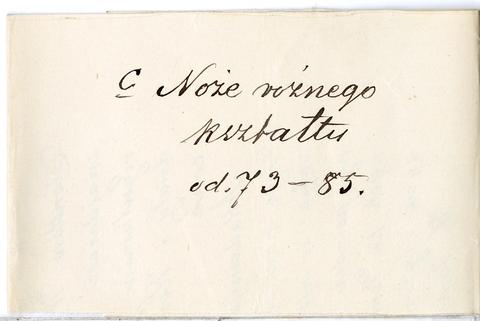 c Noże różnego
kształtu
od. 73 - 85.